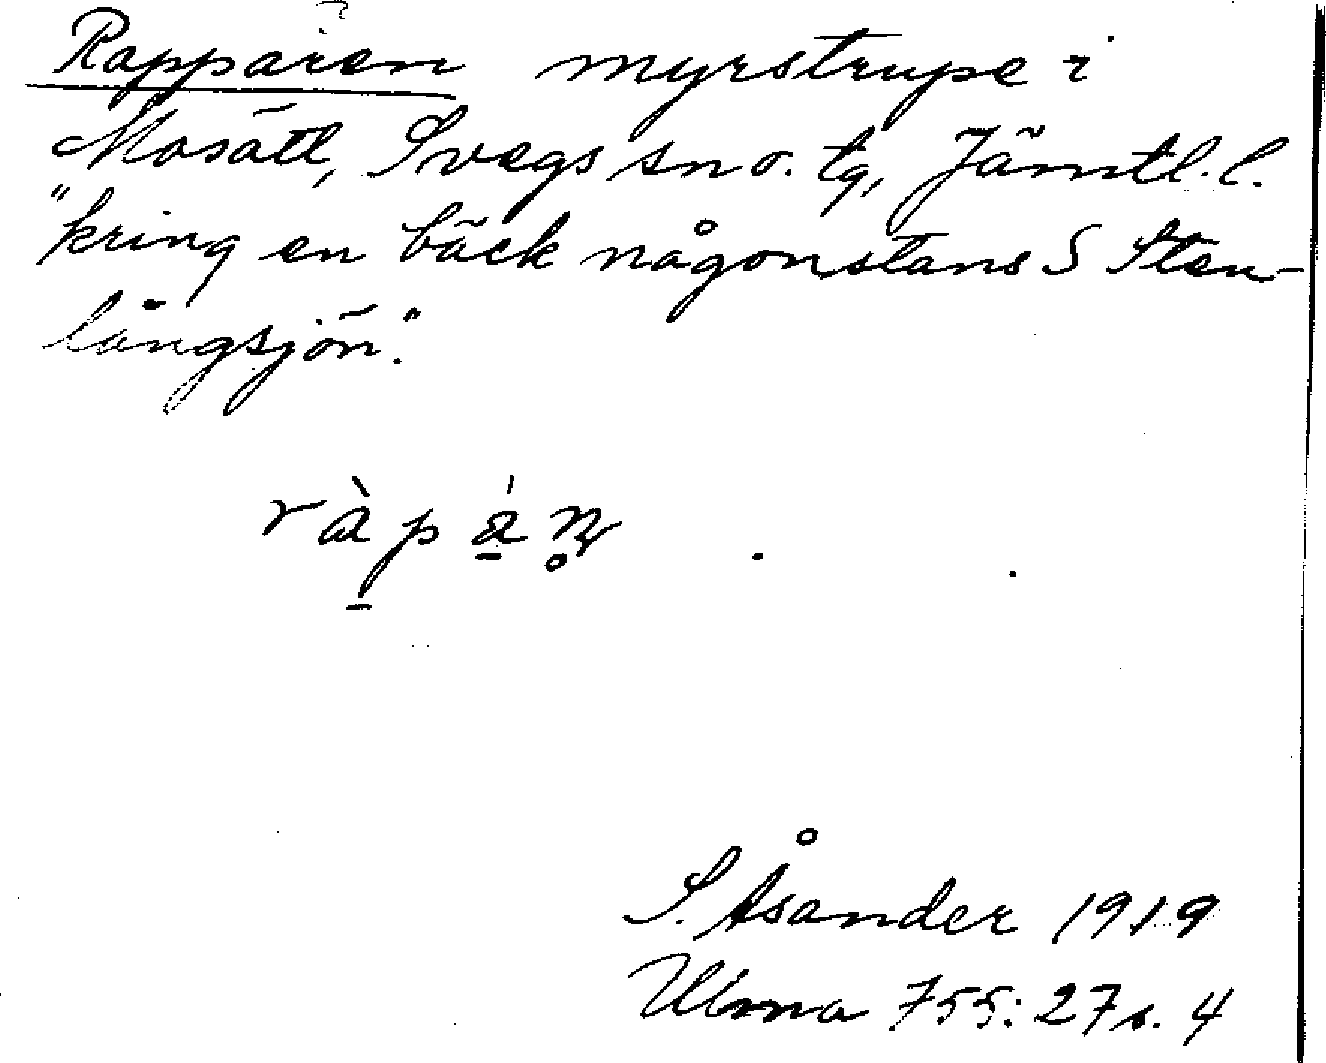 Rapparen myrstrupe i
Mosätt, Svegs sn o. tg, Jämtl. l.
"kring en bäck någonstans S Sten-
långsjön."
S. Åsander 1919
Ulma 755:27 s. 4